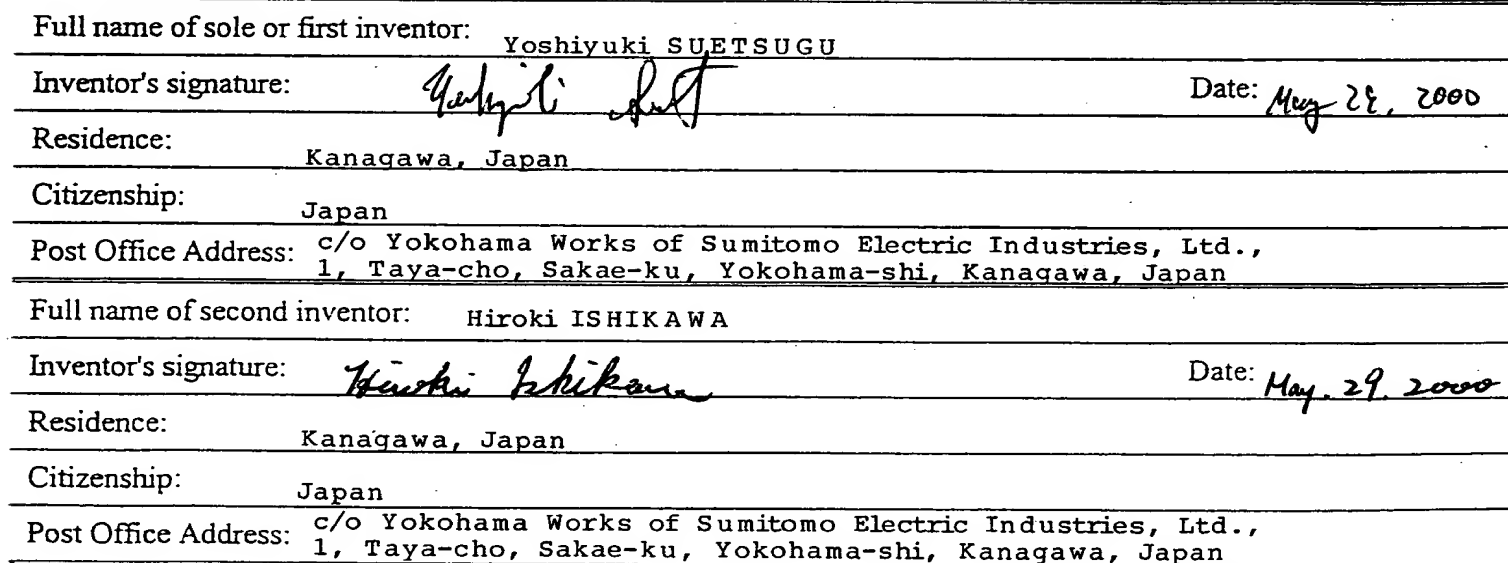 Full name of sole or first inventor: Yoshiyuki SUETSUGU
Inventor's signature: Date: May 2000
Residence: Kanagawa, Japan
Citizenship: Japan
Post Office Address: c/o Yokohama Works of Sumitomo Electric Industries, Ltd.,
1, Taya-cho, Sakae-ku, Yokohama-shi, Kanagawa, Japan
Full name of second inventor: Hiroki ISHIKAWA
Inventor's signature: Hiroki Ishikawa Date: May. 29. 2000
Residence: Kanagawa, Japan
Citizenship: Japan
Post Office Address: c/o Yokohama Works of Sumitomo Electric Industries, Ltd.,
1, Taya-cho, Sakae-ku, Yokohama-shi, Kanagawa, Japan